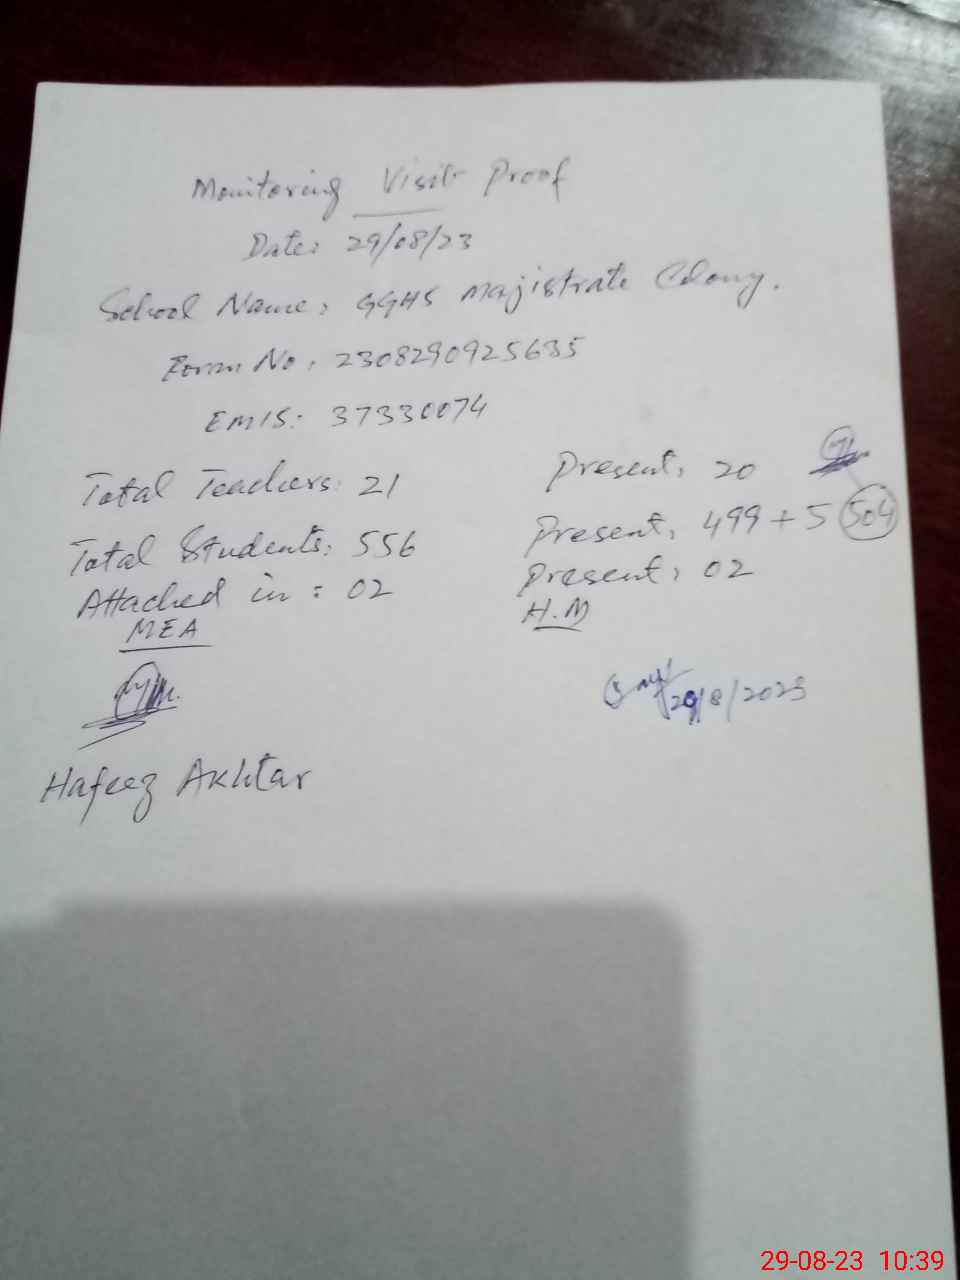 Monitoring Visit Proof
Date: 29/08/23
School Name: GGHS Majistrate Colony.
Form No: 2308290925635
EMIS: 37330074
Total Teachers: 21 Present: 20
Total Students: 556 Present: 499 + 5 504
Attached in: 02 Present: 02
MEA H.M
29/8/2023
Hafeez Akhtar
29-08-23 10:39